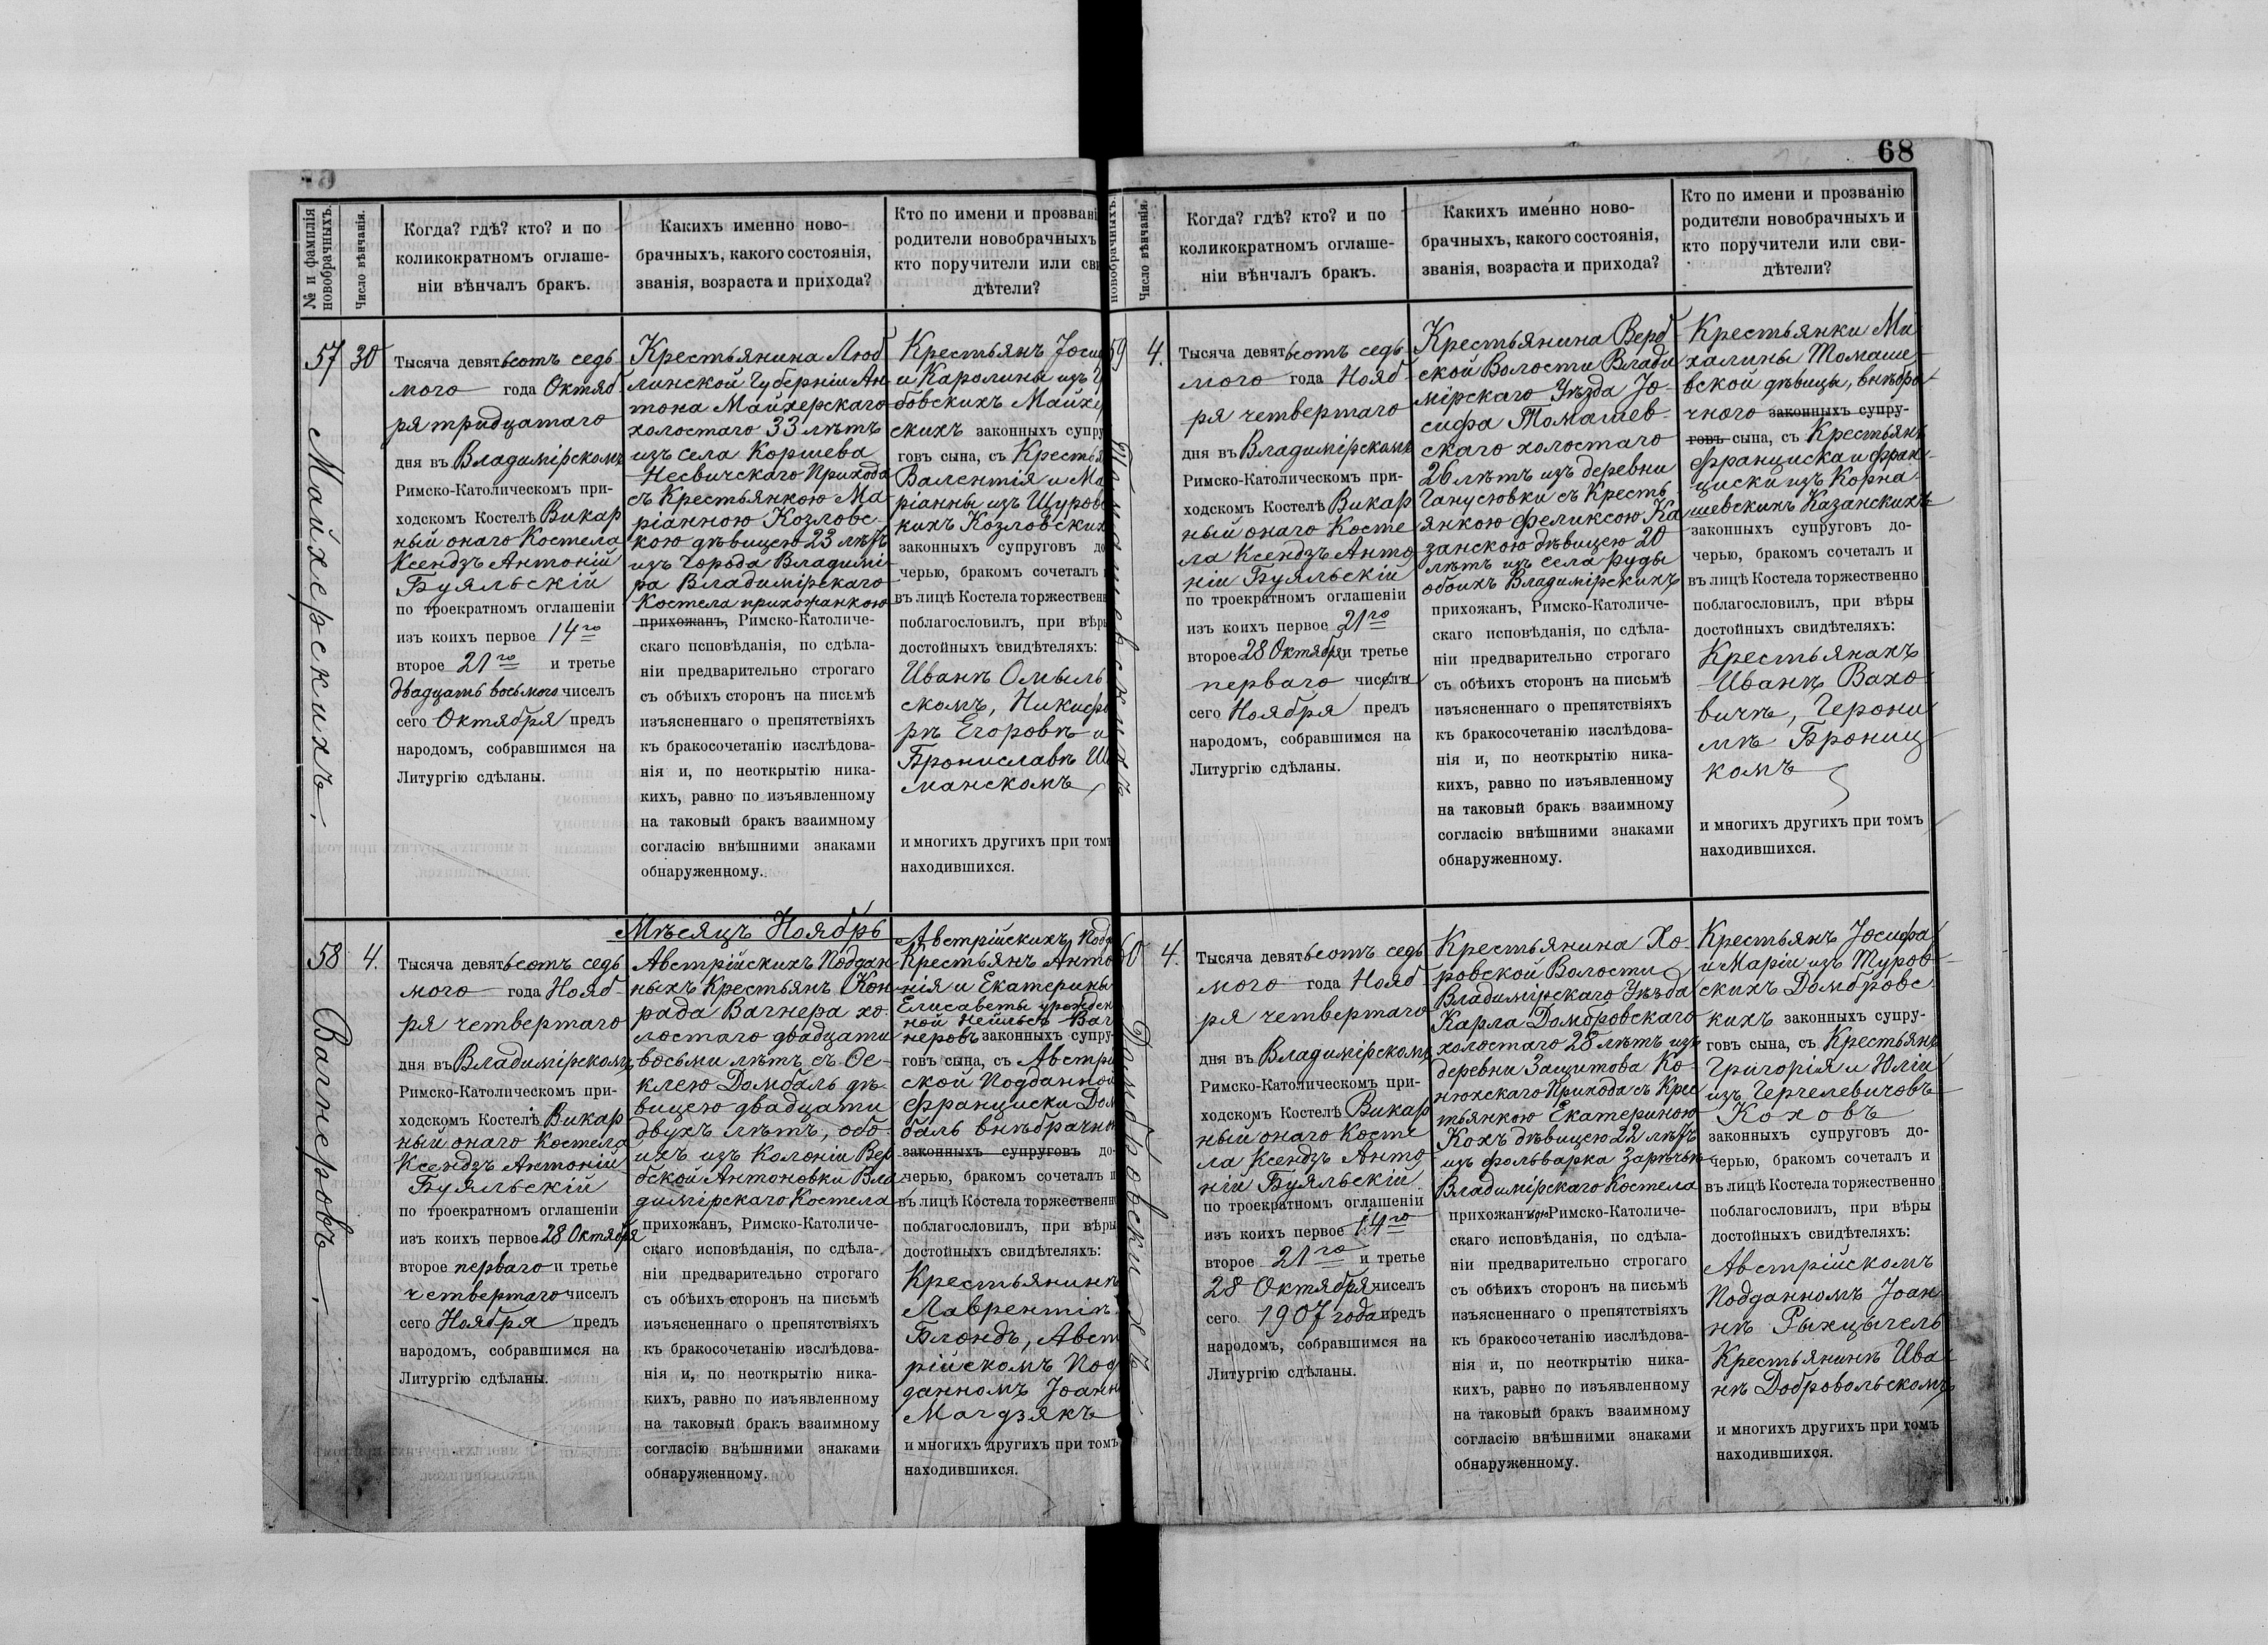 68
№ и фамилія
новобрачныхъ.
Число вѣнчанія.
Когда? гдѣ? кто? и по
коликократномъ оглаше-
ніи вѣнчалъ бракъ.
Какихъ именно ново-
брачныхъ, какого состоянія,
званія, возраста и прихода?
Кто по имени и прозвані
родители новобрачныхъ
кто поручители или сви
дѣтели?
57
Майхерскихъ.
30
Тысяча девятьсотъ седь
мого года Октяб
ря тридцатаго
дня въ Владимірскомъ
Римско-Католическомъ при-
ходскомъ Костелѣ Викар
ный онаго Костела
Ксендзъ Антоній
Буяльскій
по троекратномъ оглашеніи
изъ коихъ первое 14го
второе 21го и третье
двадцать восьмого чиселъ
сего Октября предъ
народомъ, собравшимся на
Литургію сдѣланы.
Крестьянина Люб
линской Губерніи Ан
тона Майхерскаго
холостаго 33 лѣтъ
изъ села Коршева
Несвичскаго Прихода
съ Крестьянкою Ма
ріанною Козловс-
кою дѣвицею 23 лѣтъ
изъ Города Владимі-
ра Владимірскаго
Костела прихожанкою
прихожанъ, Римско-Католиче-
скаго исповѣданія, по сдѣла-
ніи предварительно строгаго
съ обѣихъ сторонъ на письмѣ
изъясненнаго о препятствіяхъ
къ бракосочетанію изслѣдова-
нія и, по неоткрытію ника-
кихъ, равно по изъявленному
на таковый бракъ взаимному
согласію внѣшними знаками
обнаруженному.
Крестьянъ Іоси
и Каролины изъ
бовскихъ Майхе
скихъ законныхъ супру
говъ сына, съ Крестья
Валентія и Ма
ріанны изъ Щуров
кихъ Козловских
законныхъ супруговъ до
черью, бракомъ сочеталъ
въ лицѣ Костела торжествен
поблагословилъ, при вѣр
достойныхъ свидѣтеляхъ:
Иванѣ Омыль
скомъ, Никифо
рѣ Егоровѣ и
Брониславѣ Ш
манскомъ
и многихъ другихъ при томъ
находившихся.
Мѣсяцъ Ноябрь
58
Вагнеровъ.
4.
Тысяча девятьсотъ седь
мого года Нояб
ря четвертаго
дня въ Владимірскомъ
Римско-Католическомъ при-
ходскомъ Костелѣ Викар
ный онаго Костела
Ксендзъ Антоній
Буяльскій
по троекратномъ оглашеніи
изъ коихъ первое 28 Октября
второе перваго и третье
четвертаго чиселъ
сего Ноября предъ
народомъ, собравшимся на
Литургію сдѣланы.
Австрійскихъ Поддан
ныхъ Крестьянъ Кон
рада Вагнера хо
лостаго двадцати
восьми лѣтъ съ Ѳе-
клею Домбаль дѣ-
вицею двадцати
двухъ лѣтъ, обо-
ихъ изъ Колоніи Вер
бской Антоновки Вла
димірскаго Костела
прихожанъ, Римско-Католиче-
скаго исповѣданія, по сдѣла-
ніи предварительно строгаго
съ обѣихъ сторонъ на письмѣ
изъясненнаго о препятствіяхъ
къ бракосочетанію изслѣдова-
нія и, по неоткрытію ника-
кихъ, равно по изъявленному
на таковый бракъ взаимному
согласію внѣшними знаками
обнаруженному.
Австрійскихъ Подд
Крестьянъ Анто
нія и Екатерины
Елисаветы урожден
ной Нейльсъ Ваг
неровъ законныхъ супру-
говъ сына, съ Австрій
ской Подданной
Франциски Дом
баль внѣбрачн
законныхъ супруговъ до-
черью, бракомъ сочеталъ и
въ лицѣ Костела торжественн
поблагословилъ, при вѣры
достойныхъ свидѣтеляхъ:
Крестьянинѣ
Лаврентіѣ
Блондъ, Авст
рійскомъ Под
данномъ Іоанн
Магдзякъ
и многихъ другихъ при томъ
находившихся.
новобрачныхъ.
Число вѣнчанія.
Когда? гдѣ? кто? и по
коликократномъ оглаше-
ніи вѣнчалъ бракъ.
Какихъ именно ново-
брачныхъ, какого состоянія,
званія, возраста и прихода?
Кто по имени и прозванію
родители новобрачныхъ и
кто поручители или сви-
дѣтели?
59
Томашевскихъ
4.
Тысяча девятьсотъ седь
мого года Нояб
ря четвертаго
дня въ Владимірскомъ
Римско-Католическомъ при-
ходскомъ Костелѣ Викар
ный онаго Косте
ла Ксендзъ Анто
ній Буяльскій
по троекратномъ оглашеніи
изъ коихъ первое 21го
второе 28 Октября и третье
перваго числа
сего Ноября предъ
народомъ, собравшимся на
Литургію сдѣланы.
Крестьянина Верб
ской Волости Влади
мірскаго Уѣзда Іо-
сифа Томашев
скаго холостаго
26 лѣтъ изъ деревни
Ганусювки съ Кресть
янкою Феликсою Ка
занскою дѣвицею 20
лѣтъ изъ села Руды
обоихъ Владимірскихъ
прихожан, Римско-Католиче-
скаго исповѣданія, по сдѣла-
ніи предварительно строгаго
съ обѣихъ сторонъ на письмѣ
изъясненнаго о препятствіяхъ
къ бракосочетанію изслѣдова-
нія и, по неоткрытію ника-
кихъ, равно по изъявленному
на таковый бракъ взаимному
согласію внѣшними знаками
обнаруженному.
Крестьянки Ми
халины Томаше
вской дѣвицы, внѣбра
чного законныхъ супру-
говъ сына, съ Крестьянъ
Франциска и Фран-
циски изъ Корна-
шевскихъ Казанскихъ
законныхъ супруговъ до-
черью, бракомъ сочеталъ и
въ лицѣ Костела торжественно
поблагословилъ, при вѣры
достойныхъ свидѣтеляхъ:
Крестьянахъ
Иванѣ Вахо
вичѣ, Герони
мѣ Брониц
комъ
и многихъ другихъ при томъ
находившихся.
60
Домбровскихъ
4.
Тысяча девятьсотъ седь
мого года Нояб
ря четвертаго
дня въ Владимірскомъ
Римско-Католическомъ при-
ходскомъ Костелѣ Викар
ный онаго Косте
ла Ксендзъ Анто
ній Буяльскій
по троекратномъ оглашеніи
изъ коихъ первое 14го
второе 21го и третье
28 Октября чиселъ
сего 1907 года предъ
народомъ, собравшимся на
Литургію сдѣланы.
Крестьянина Хо-
ровской Волости
Владимірскаго Уѣзда
Карла Домбровскаго
холостаго 28 лѣтъ изъ
деревни Защитова Ко-
нюхскаго Прихода съ Крес
тьянкою Екатериною
Кохъ дѣвицею 22 лѣтъ
изъ фольварка Зарѣчье
Владимірскаго Костела
прихожанкою Римско-Католиче-
скаго исповѣданія, по сдѣла-
ніи предварительно строгаго
съ обѣихъ сторонъ на письмѣ
изъясненнаго о препятствіяхъ
къ бракосочетанію изслѣдова-
нія и, по неоткрытію ника-
кихъ, равно по изъявленному
на таковый бракъ взаимному
согласію внѣшними знаками
обнаруженному.
Крестьянъ Іосифа
и Маріи изъ Туров-
скихъ Домбровс
кихъ законныхъ супру-
говъ сына, съ Крестьянъ
Григорія и Юліи
изъ Герчелевичовъ
Коховъ
законныхъ супруговъ до-
черью, бракомъ сочеталъ и
въ лицѣ Костела торжественно
поблагословилъ, при вѣры
достойныхъ свидѣтеляхъ:
Австрійскомъ
Подданномъ Іоан
нѣ Рыхцыгель
Крестьянинѣ Ива
нѣ Добровольскомъ
и многихъ другихъ при томъ
находившихся.